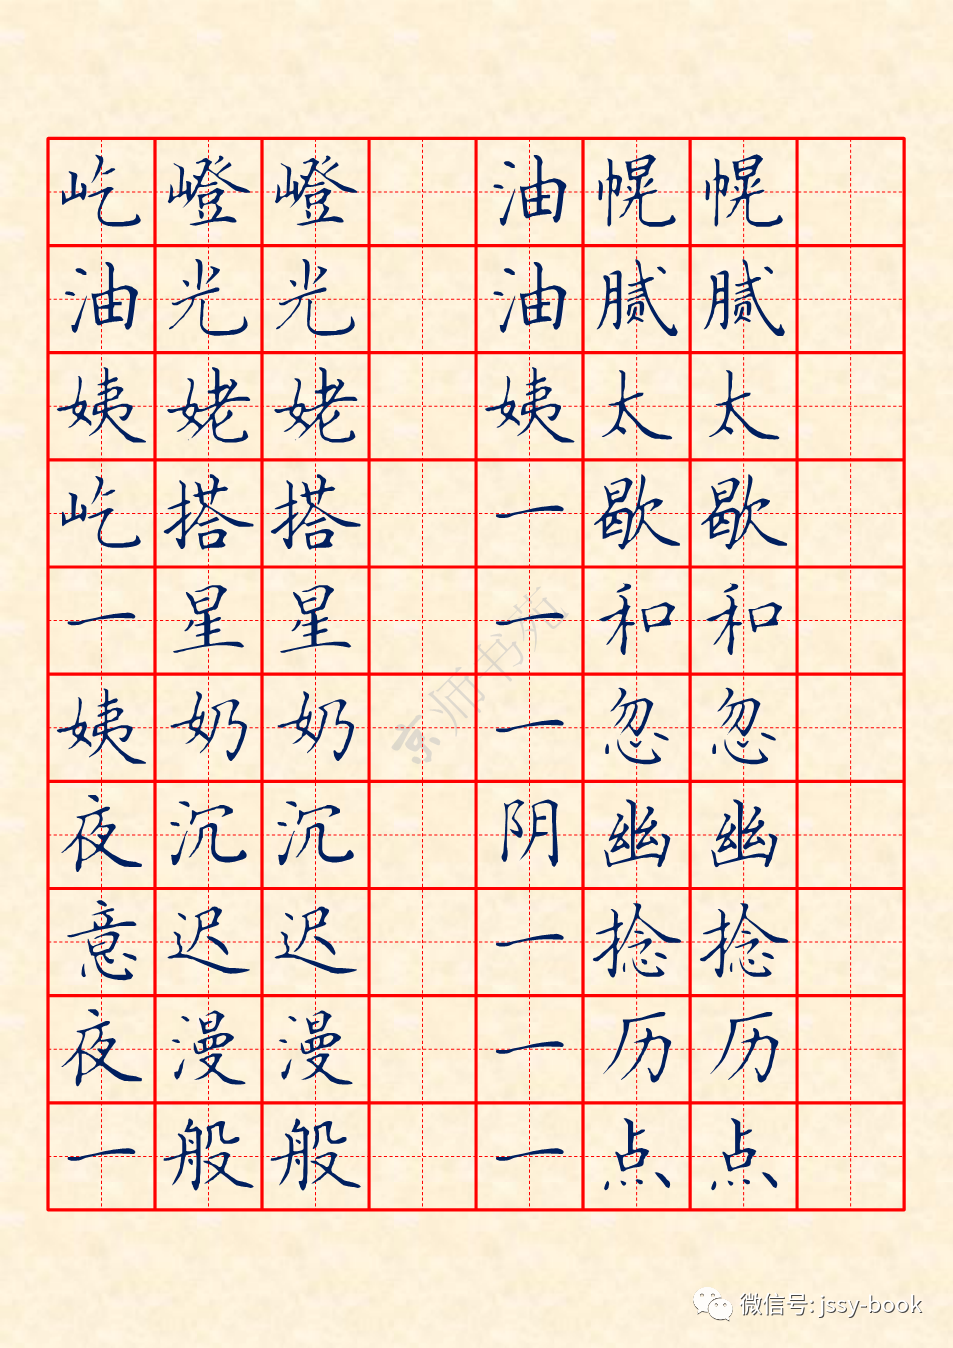 屹嶝嶝 油幌幌
油光光 油腻腻
姨姥姥 姨太太
屹搭搭 一歇歇
一星星 一和和
姨奶奶 一忽忽
夜沉沉 阴幽幽
意迟迟 一捻捻
夜漫漫 一历历
一般般 一点点
京师书苑
微信号: jssy-book